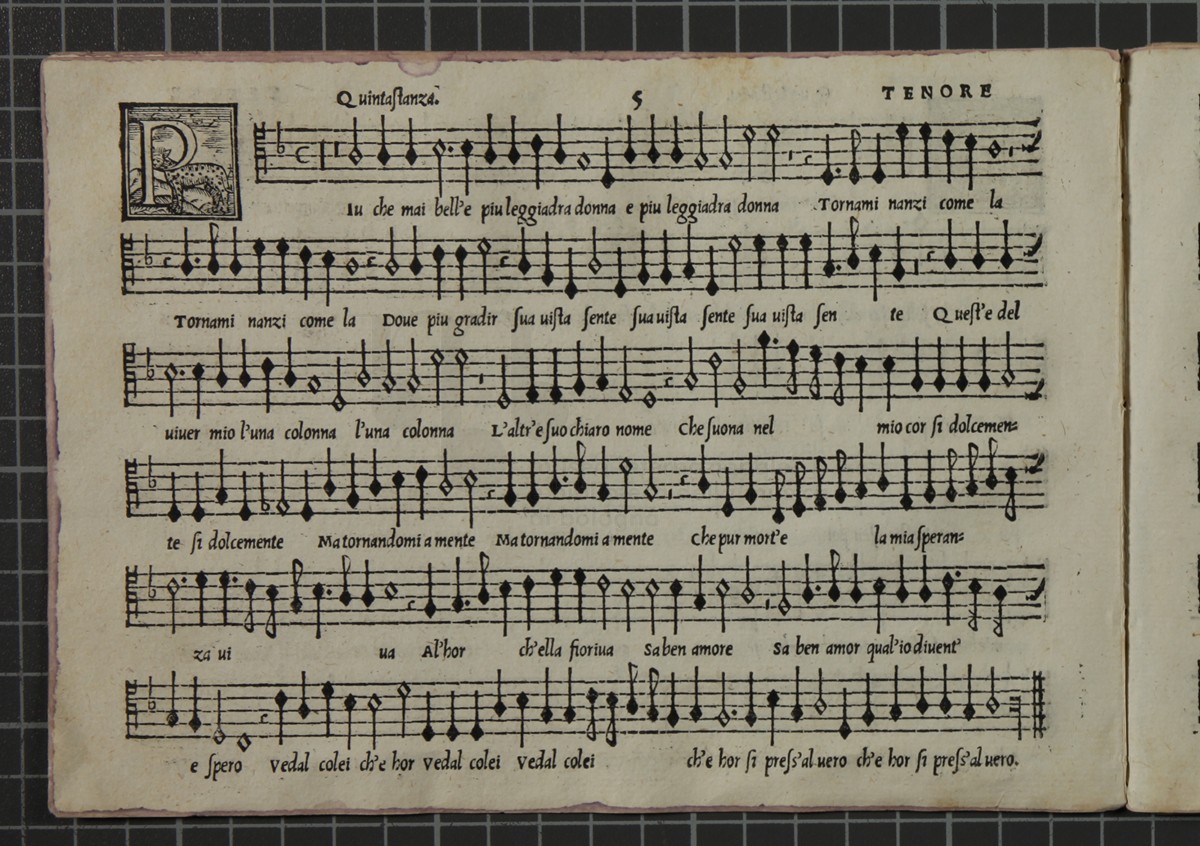 Quinta stanza. 5 TENORE
PIu che mai bell'e piu leggiadra donna e piu leggiadra donna Tornami nanzi come la
Tornami nanzi come la Doue piu gradir sua uista sente sua uista sente sua uista sen te Quest'e del
uiuer mio l'una colonna l'una colonna L'altr'e suo chiaro nome Che suona nel mio cor si dolcemen=
te si dolcemente Ma tornandomi a mente Ma tornandomi a mente Che pur mort'e la mia speran=
za ui ua Al'hor ch'ella fioriua Sa ben amore Sa ben amor qual'io diuent'
e spero Vedal colei ch'e hor Vedal colei Vedal colei ch'e hor si press'al uero ch'e hor si press'al uero.